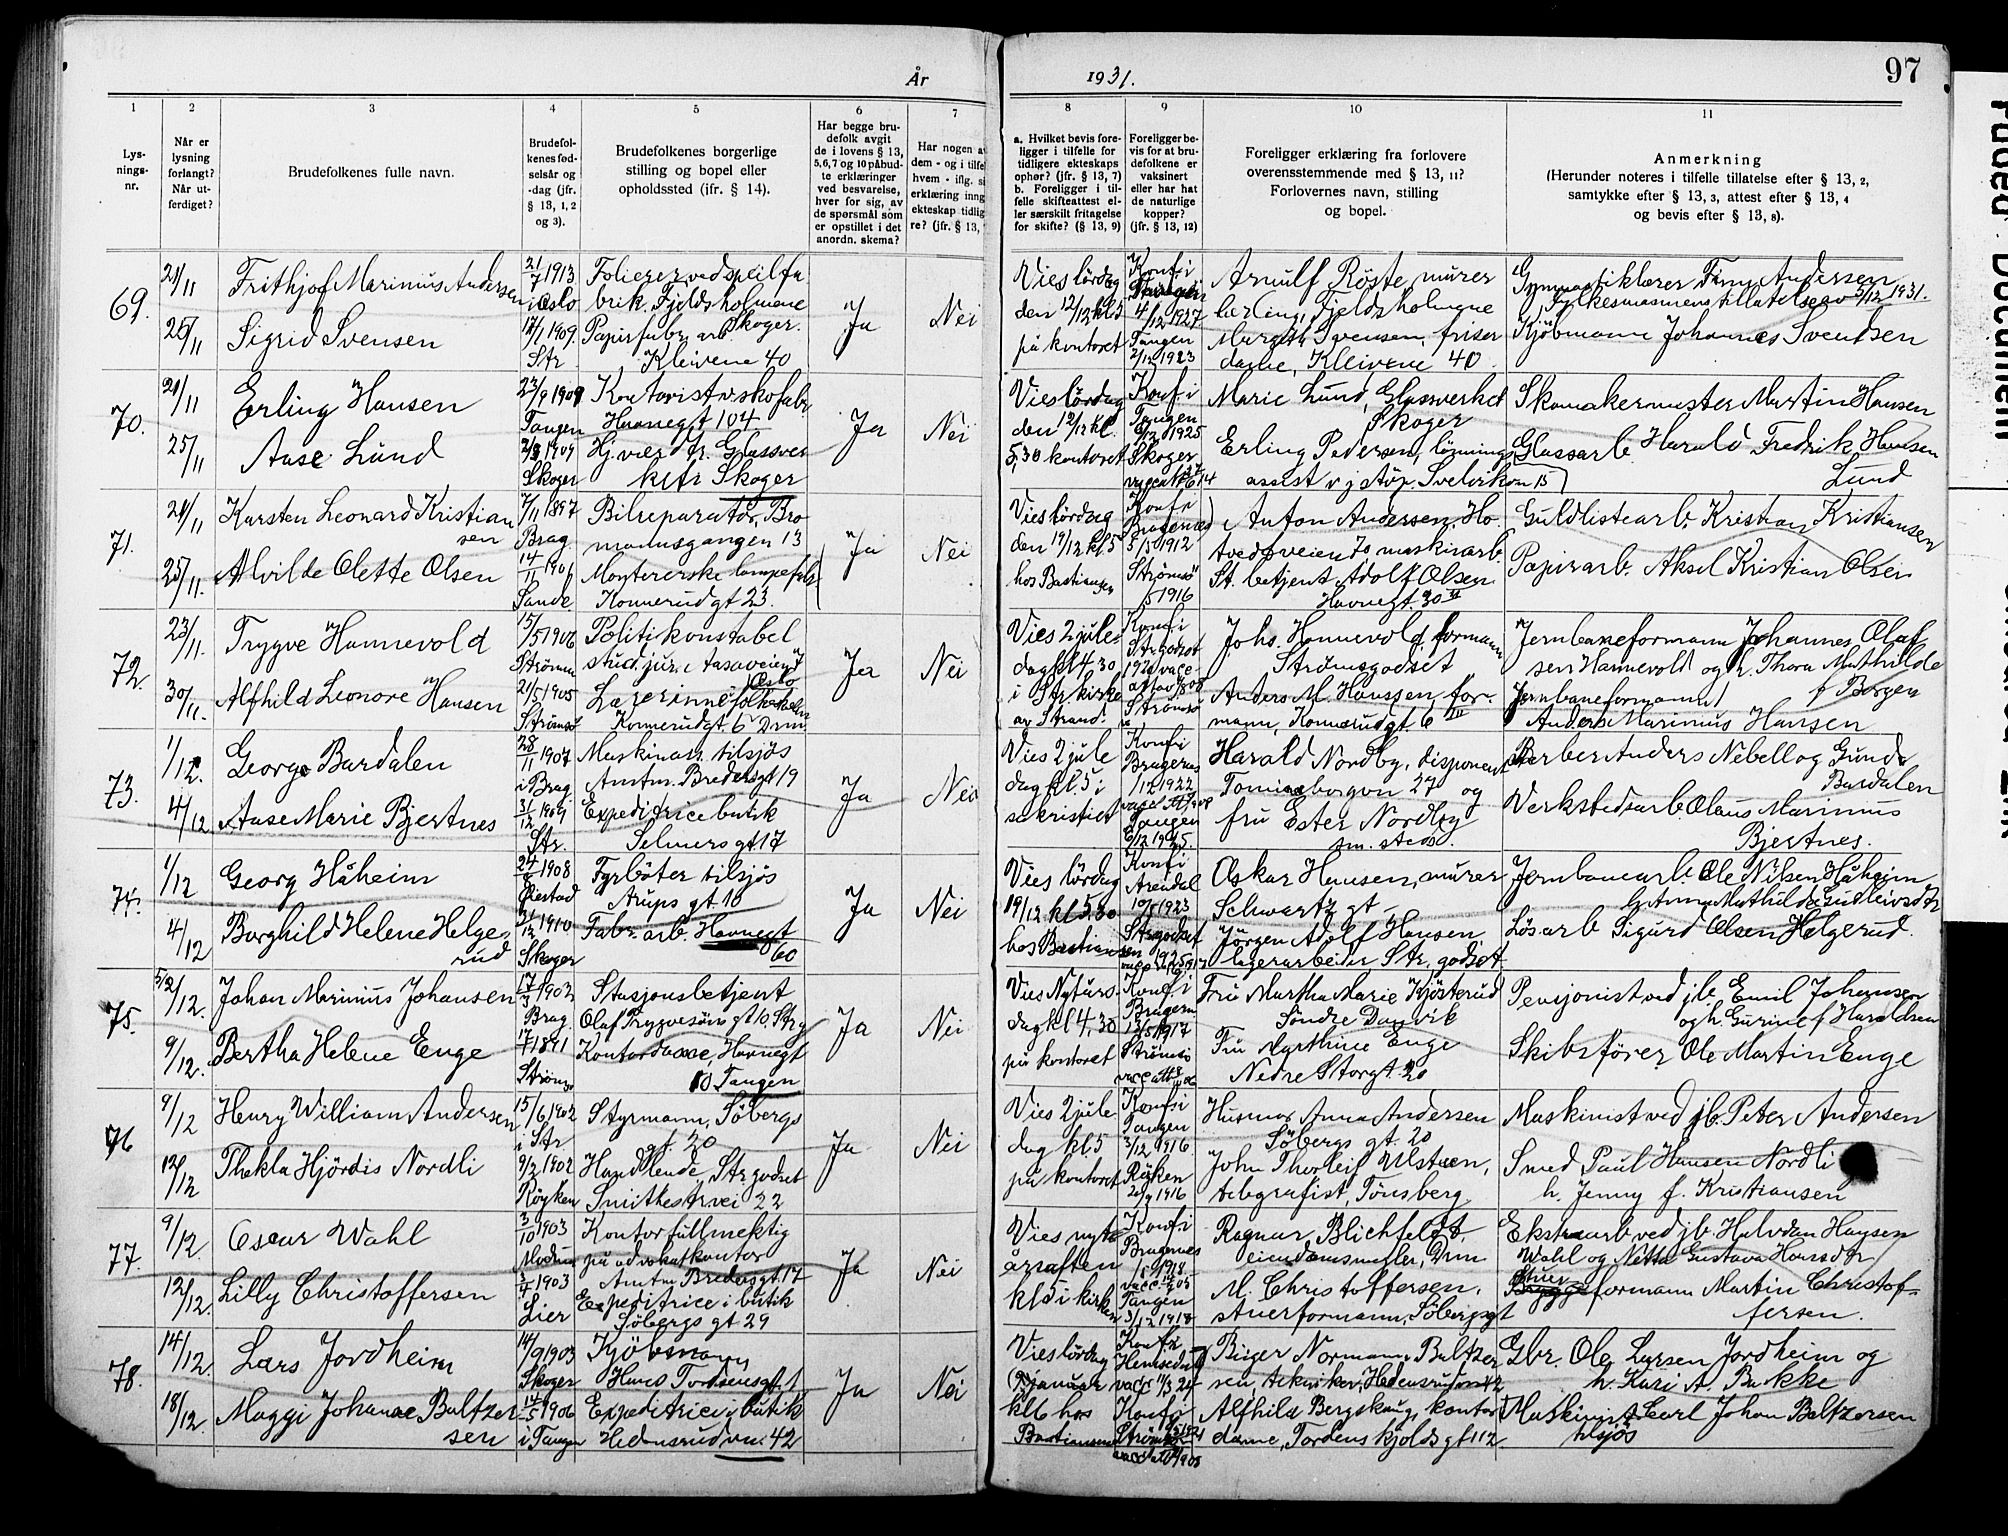 År 1931. 97
1 2 3 4 5 6 7 8 9 10 11
Lys-
nings-
nr.
Når er
lysning
forlangt?
Når ut-
ferdiget?
Brudefolkenes fulle navn.
Brudefol-
kenes fød-
selsår og
-dag (jfr.
§ 13, 1, 2
og 3).
Brudefolkenes borgerlige
stilling og bopel eller
opholdssted (ifr. § 14).
Har begge bru-
defolk avgit
de i lovens § 13,
5,6,7 og 10 påbud-
te erklæringer
ved besvarelse,
hver for sig, av
de spørsmål som
er opstillet i det
anordn. skema?
Har nogen a
dem - og i tilfel
hvem - iflg. si
erklæring inng
ekteskap tidlig
re? (jfr. § 13,
a. Hvilket bevis fore-
ligger i tilfelle for
tidligere ekteskaps
ophør? (jfr. § 13, 7)
b. Foreligger i til-
felle skifteattest el-
ler særskilt fritagelse
for skifte? (§ 13, 9)
Foreligger be-
vis for at bru-
defolkene er
vaksinert
eller har hat
de naturlige
kopper?
(jfr. § 13, 12)
Foreligger erklæring fra forlovere
overensstemmende med § 13, 11?
Forlovernes navn, stilling
og bopel.
Anmerkning
(Herunder noteres i tilfelle tillatelse efter § 13, 2,
samtykke efter § 13, 3, attest efter § 13, 4
og bevis efter § 13, 8).
69.
21/11
25/11
Frithjof Marinius Andersen
Sigrid Svensen
21/7 1913
i Oslo
17/1 1909.
Str
Folierer ved speilfa
brik. Fjeldsholmene
Skoger.
Papirfabr. arb
Kleivene 40
Ja
Nei
Vies lördag
den 12/12 kl 5
på kontoret
Konf i
4/12 1927
Tangen
2/12 1923
Arnulf Röste, murer
lærling, Fjeldsholmene
Margit Svensen, friser
dame, Kleivene 40.
Gymnastiklærer Andersen
Fylkesmannens tillatelse av 5/12 1931.
Kjöbmann Johannes Svendsen
70.
21/11
25/11
Erling Hansen
Aase Lund
23/9 1909
Tangen
1909
Skoger
Kontorist v. skofabr
Havnegt 104
Hj. vær. fr. Glassver
ket Skoger
Ja
Nei
Vies lördag
den 12/12 kl.
5,30 kontoret
Konf. i
Tangen
1925
Skoger
Marie Lund, Glassverket
Skoger
Erling Pedersen, lönnings
assist v j stöp. Svelvikvn 15
Skomakermester Martin Hansen
Glassarb. Harald Fredrik Hansen
Lund
71.
21/11
25/11.
Karsten Leonard Kristian
sen
Alvilde Olette Olsen
7/11 1897
Brag.
14/11 1901
Sande
Bilreparatör, Bro
mannsgangen 13
Montererske lampefabr
Konnerudgt 23.
Ja
Nei
Vies lördag
den 19/12 kl 5
hos Bastiansen
Konf i
Bragernes
5/5 1912
Strömsö
1916
Anton Andersen, Ho.
tvedtveien 70 maskinarb.
St. betjent Adolf Olsen
Havnegt. 30 II
Guldlistearb. Kristian Kristiansen
Papirarb. Aksel Kristian Olsen
72.
23/11.
30/11.
Trygve Hannevold
Alfhild Leonore Hansen
15/5 1906
Strömsö
21/5 1905
Strömsö
Politikonstabel
stud. jur. Aasaveien 7
Oslo
Lærerinne folkeskolen
Konnerudgt. 6 Drm.
Ja
Nei
Vies 2 jule
dag kl 4,30
i Str. kirke
av Strand.
Konf i
Str. godset
Strömsö
Johs. Hannevold, formann
Strömsgodset
Anders M. Hanssen, for-
mann, Konnerudgt. 6 III
Jernbaneformann Johannes Olaf
sen Hannevold og h. Thora Mathilde
f Borgen
Jernbaneformann
Anders Marinius Hansen
73.
1/12.
4/12
George Bardalen
Aase Marie Bjertnes
28/11 1907
i Brag
31/12 1909
Str.
Maskinass. tilsjös
Amtm. Bredersgt 19
Expeditrice butik
Selmersgt 17
Ja
Nei
Vies 2 jule
dag kl. 5 i
sakristiet
Konf i
Bragernes
1/12 1922
Tangen
6/12 1925.
Harald Nordby, disponent
Tomineborgvn 27 og
fru Ester Nordby
sm. steds.
Barber Anders Nebell og Gunda
Bardalen
Verkstedsarb. Olaus Marinius
Bjertnes.
74.
1/12
4/12
Georg Håheim
Borghild Helene Helge-
rud
24/8 1908
Öiestad
24/12 1910
Skoger
Fyrböter tilsjös
Arups gt. 10
Fabr. arb. Havnegt
60
Ja
Nei
Vies lördag
19/12 kl 5.30
hos Bastiansen
Konf i
Arendal
1923
Str. godset
1925
Oskar Hansen, murer
Schwartz gt –
Jörgen Adolf Hansen
lagerarbeider Str. godset
Jernbanearb. Ole Nilsen Håheim
Anna Mathilde Gudleivsdtr
Lösarb Sigurd Olsen Helgerud.
75.
9/12.
Johan Marinius Johansen
Bertha Helene Enge
17/3 1903
Brag.
1891
Strömsö
Stasjonsbetjent
Olaf Trygvesöns gt. 10. Strg
Kontordame, Havnegt
10 Tangen
Ja
Nei
Vies Nytårs-
dag kl 4,30
på kontoret
Konf i
Bragern.
1917
Strömsö
Fru Martha Marie Kjösterud
Söndre Dansvik
Fru Marthine Enge
Nedre Storgt. 20
Pensjonist ved jb. Emil Johansen
og h. Gurine f Haraldsen
Skibsförer Ole Martin Enge
76
9/12
12/12
Henry William Andersen
Thekla Hjördis Nordli
15/6 1902
i Str
9/2 1902
Röyken
Styrmann, Söbergs
gt 20
Handlende, Str. godset
Smithestr. vei 22
Ja
Nei
Vies 2 jule
dag kl. 5
på kontoret
Konf i
Tangen
3/12 1916.
Röyken
1916
Husmor Anna Andersen
Söbergs gt. 20
John Thorleif Ulstuen,
telegrafist, Tönsberg.
Maskinist ved jb. Peter Andersen
Smed Paul Hansen Nordli
h. Jenny f. Kristiansen
77.
9/12.
12/12.
Oscar Wahl
Lilly Christoffersen
3/10 1903
Modum
3/4 1903
Lier
Kontorfullmektig
på advokatkontor
Amtm Bredersgt. 17
Expeditrice i butik
Söbergs gt 29
Ja
Nei
Vies nyt
årsaften
kl 5 i kirken
Konf i
Bragernes
1918
Tangen
3/12 1918
Ragnar Blichfeldt,
eiendomsmegler, Drm
M. Christoffersen,
stuerformann, Söbergsgt
Ekstraarb. ved jb. Halvdan Hansen
Wahl og Netta Gustava Hansdtr
Stuerformann Martin Christof-
fersen.
78.
14/12.
18/12.
Lars Jordheim
Maggi Johanne Baltzer
sen
14/9 1903
Skoger
14/5 1906
i Tangen
Kjöbmann
Hans Tordsensgt. 1
Expeditrice i butik
Hedensrudvn. 42
Ja
Nei
Vies lördag
(2) januar
kl 6 hos
Bastiansen
Konf i
Hemsedal
vacc 11/3 24
Konf i
Strömsö
Birger Normann Baltzer
sen, tekniker, Hedensrudvn 42
Alfhild Bergskaug, kontor
dame, Tordenskjolds gt 112
Gbr. Ole Larsen Jordheim og
h. Kari A. Bakke
Maskinist Carl Johan Baltzersen
tilsjös